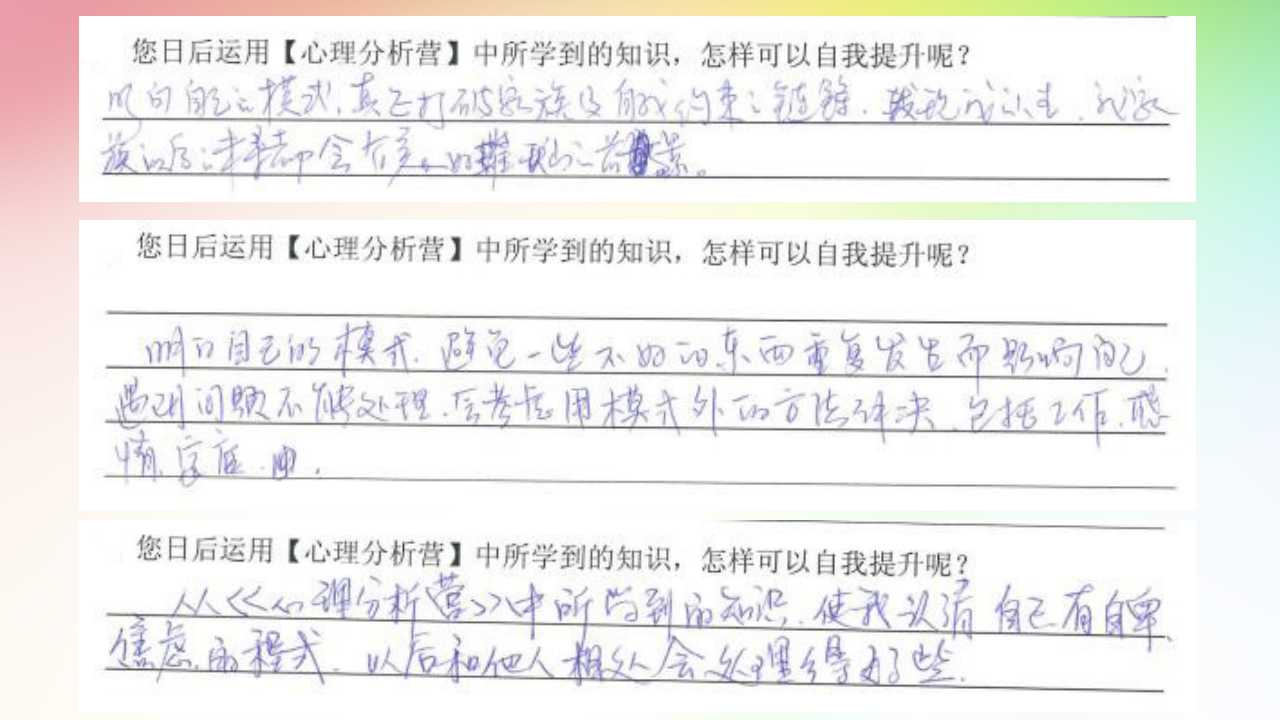 您日后运用【心理分析营】中所学到的知识，怎样可以自我提升呢？
模式，真正打破家族及自我约束之链锁。
族的后 都会有美好 之前景。
您日后运用【心理分析营】中所学到的知识，怎样可以自我提升呢？
明白自己的模式，避免一些不好的东西重复发生而影响自己，
遇到问题不能处理，会考虑用模式外的方法解决，包括工作、感
情、家庭
您日后运用【心理分析营】中所学到的知识，怎样可以自我提升呢？
从《心理分析营》中所学到的知识，使我认清自己有自卑、
焦虑的程式，以后和他人相处会处理得好些。